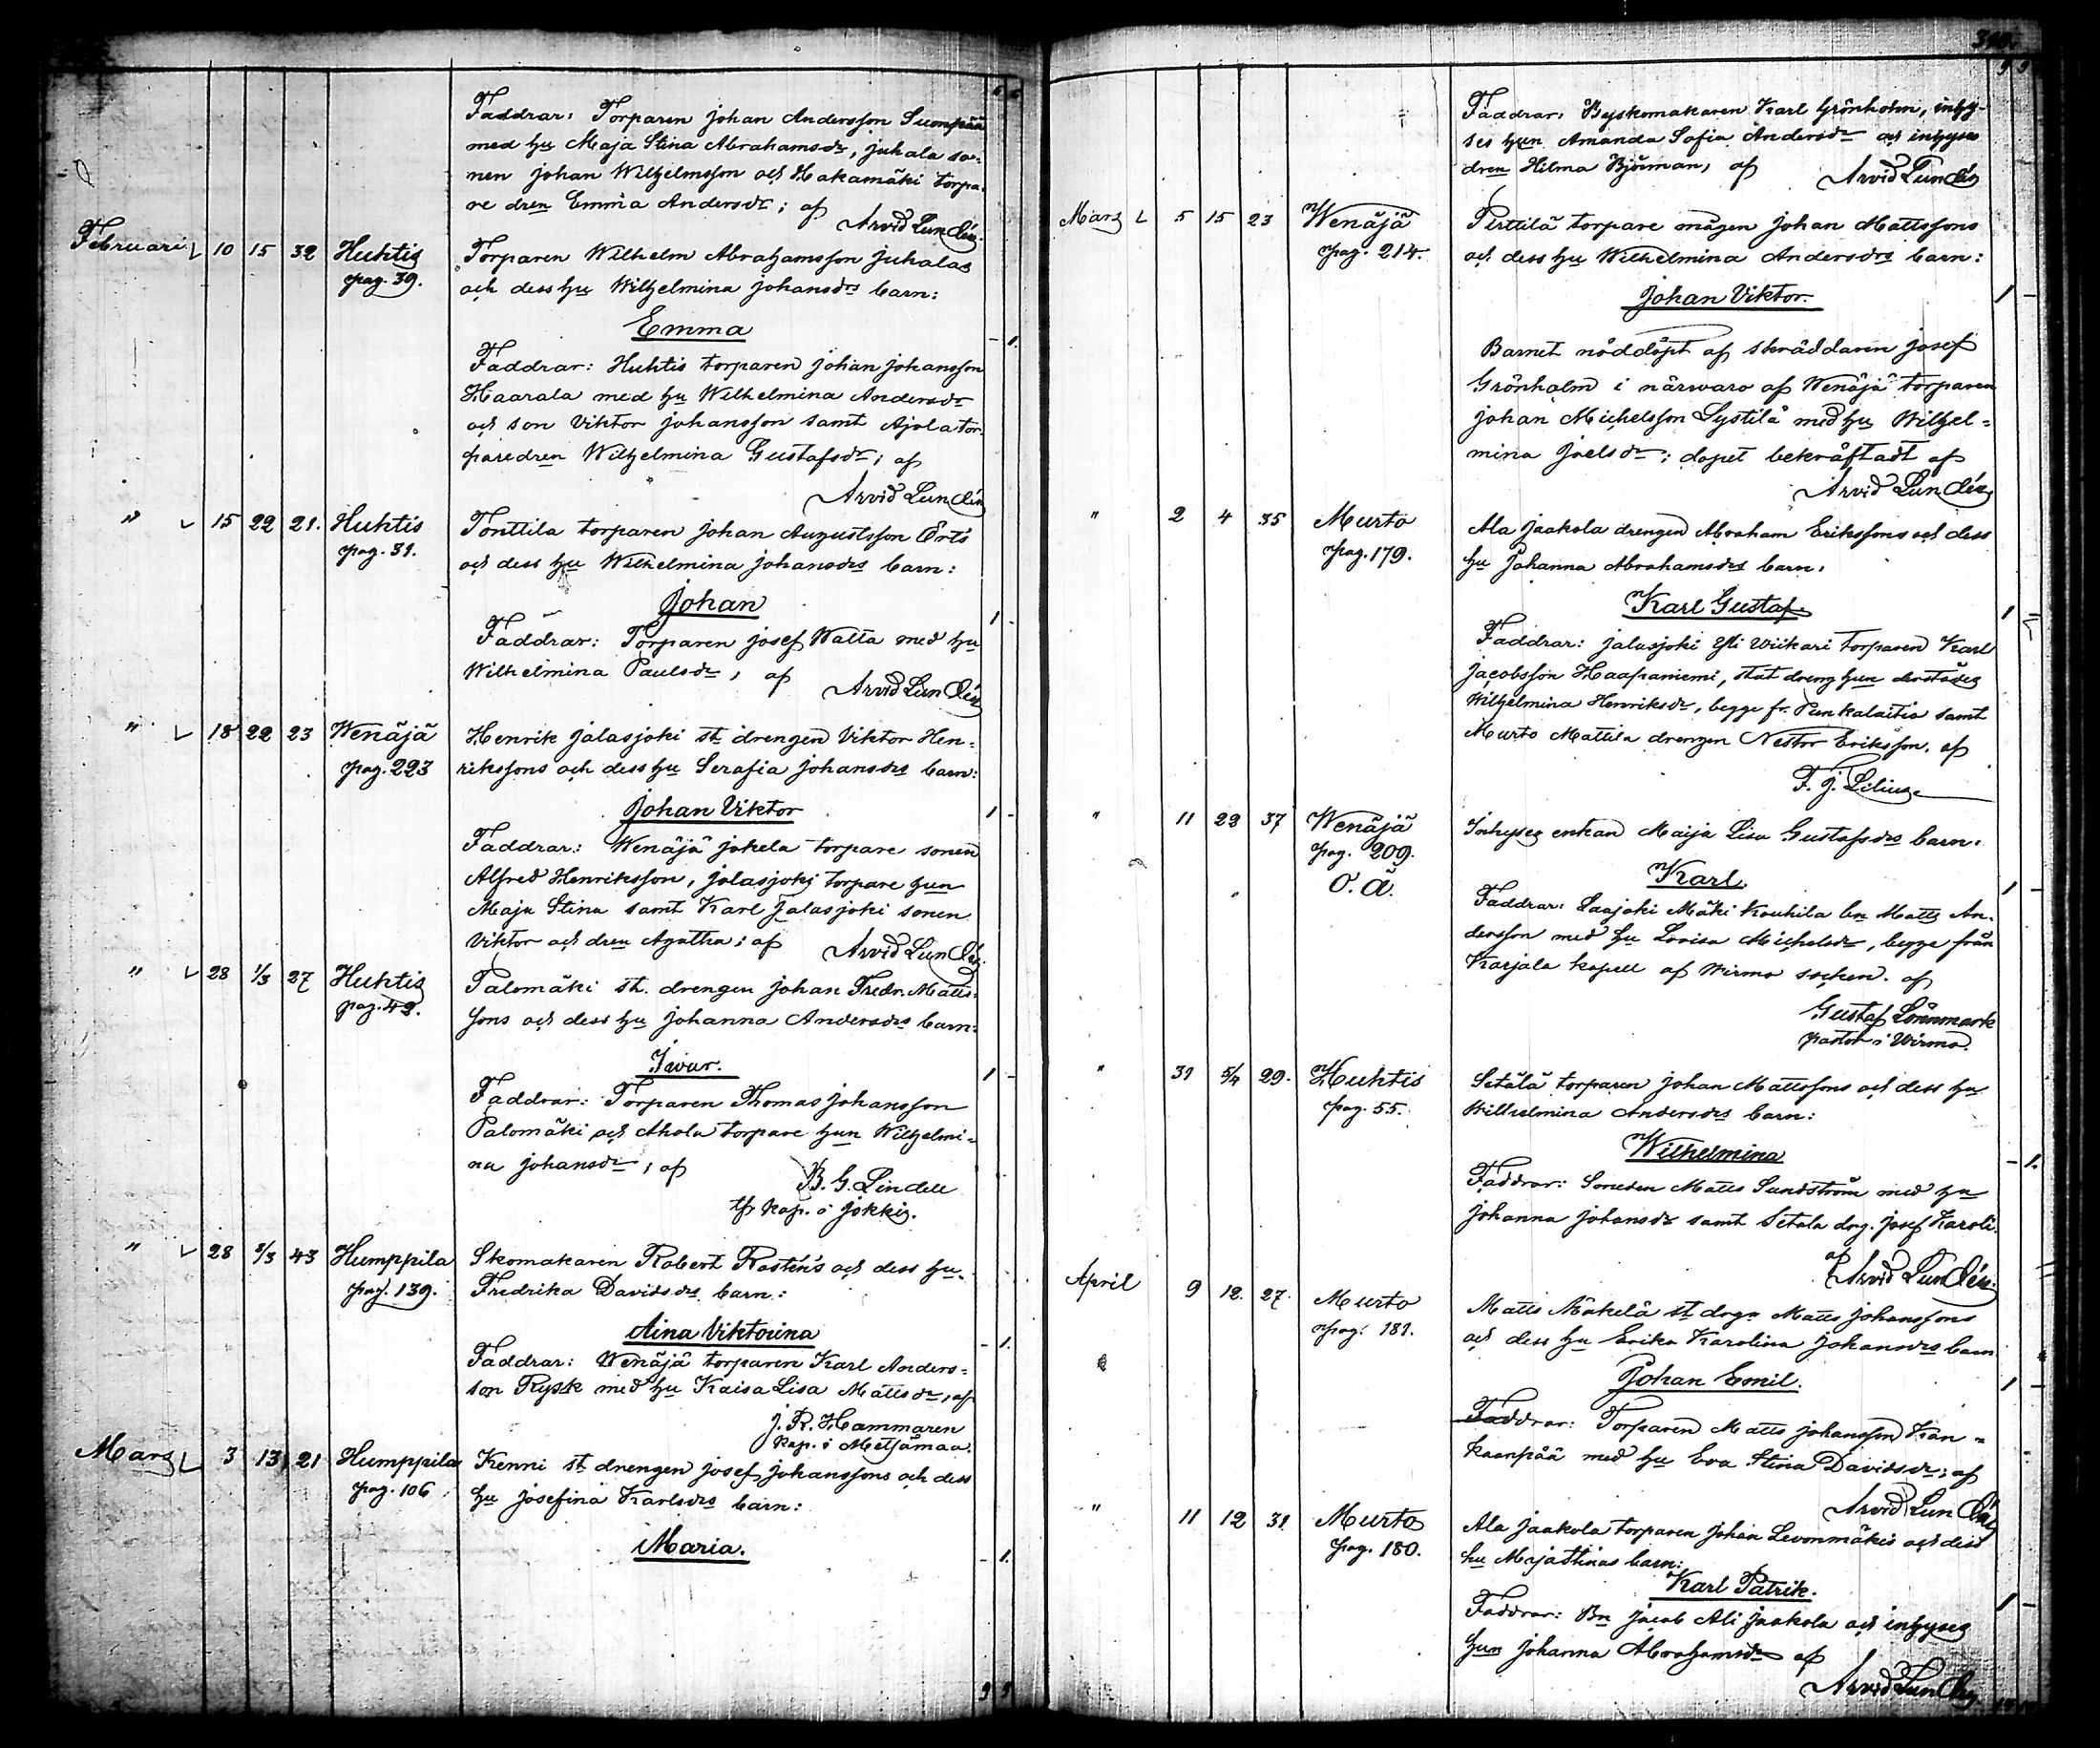 Faddrar: Torparen Johan Andersson Suonpää
med hu Maja Stina Abrahamsdr, Juhala so-
nen Johan Wilhelmsson och Hakamäki torpa-
re dren Emma Andersdr; af
Arvid Lundén.
Februari 10 15 32 Huhtis Torparen Wilhelm Abrahamsson Juhalas
pag. 39. och dess hu Wilhelmina Johansdrs barn:
Emma - 1.
Faddrar: Huhtis torparen Johan Johansson
Haarala med hu Wilhelmina Andersdr
och son Viktor Johansson samt Ajola tor-
paredren Wilhelmina Gustafsdr; af
Arvid Lundén
" 15 22 21. Huhtis Tonttila torparen Johan Augustsson Örts
pag. 31. och dess hu Wilhelmina Johansdrs barn:
Johan 1 -
Faddrar: Torparen Josef Walta med hu
Wilhelmina Paulsdr, af Arvid Lundén
" 18 22 23 Wenäjä Henrik Jalasjoki st. drengen Viktor Hen-
pag. 223 rikssons och dess hu Serafia Johansdrs barn:
Johan Viktor 1 -
Faddrar: Wenäjä Jokela torpare sonen
Alfred Henriksson, Jalasjoki torpare hun
Maja Stina samt Karl Jalasjoki sonen
Viktor och dren Agatha; af Arvid Lundén.
" 28 1/3 27 Huhtis Palomäki st. drengen Johan Fredr. Matts-
pag. 42. sons och dess hu Johanna Andersdrs barn:
Iwar. 1 -
Faddrar: Torparen Thomas Johansson
Palomäki och Ahola torpare hun Wilhelmi-
na Johansdr, af B. G. Lindell
tf kap. i Jokkis.
" 28 3/3 43 Humppila Skomakaren Robert Rosténs och dess hu
pag. 139. Fredrika Davidsdrs barn:
Aina Viktorina - 1.
Faddrar: Wenäjä torparen Karl Anders-
son Rysk med hu Kaisa Lisa Mattsdr, af
J. R. Hammaren
kap. i Metsämaa.
Mars 3 13 21 Humppila Kenni st drengen Josef Johanssons och dess
pag. 106 hu Josefina Karlsdrs barn:
Maria. - 1.
9 9
Faddrar: Byskomakaren Karl Grönholm, inhy-
ses hun Amanda Sofia Andersdr och inhyses
dren Hilma Björman, af Arvid Lundén
Mars 5 15 23 Wenäjä Perttilä torpare mågen Johan Mattssons
pag. 214. och dess hu Wilhelmina Andersdrs barn:
Johan Viktor. 1 -
Barnet nöddöpt af skräddaren Josef
Grönholm i närwaro af Wenäjä torparen
Johan Michelsson Systilä med hu Wilhel-
mina Joelsdr; dopet bekräftadt af
Arvid Lundén
" 2 4 35 Murto Ala Jaakola drengen Abraham Erikssons och dess
pag. 179. hu Johanna Abrahamsdrs barn:
Karl Gustaf. 1 -
Faddrar: Jalasjoki Yli Wiikari torparen Karl
Jacobsson Haapaniemi, stat dreng hun derstädes
Wilhelmina Henriksdr, begge fr. Punkalaitio samt
Murto Mattila drengen Nestor Eriksson. af
F. J. Lilius
" 11 22 37 Wenäjä Inhyses enkan Maija Lisa Gustafsdrs barn:
pag. 209.
O. ä. Karl. 1 -
Faddrar: Laajoki Mäki Kouhila bn Matts An-
dersson med hu Lovisa Michelsdr, begge från
Karjala kapell af Wirmo socken. af
Gustaf Lönnmark
pastor i Wirmo.
" 31 5/4 29. Huhtis Setälä torparen Johan Mattssons och dess hu
pag. 55. Wilhelmina Andersdrs barn:
Wilhelmina - 1.
Faddrar: Smeden Matts Sundström med hu
Johanna Johansdr samt Setala drg. Josef Karoli.
af Arvid Lundén.
April 9 12. 27. Murto Matts Mäkelä st drgn Matts Johanssons
pag. 181. och dess hu Erika Karolina Johansdrs barn
Johan Emil. 1 -
Faddrar: Torparen Matts Johansson Kan-
kaanpää med hu Eva Stina Davidsdr; af
Arvid Lundén
" 11 12 31. Murto Ala Jaakola torparen Johan Levonmäkis och dess
pag. 180. hu Maja Stinas barn:
Karl Patrik. 1 -
Faddrar: Bn Jacob Ali Jaakola och inhyses
hun Johanna Abrahamsdr af
Arvid Lundén